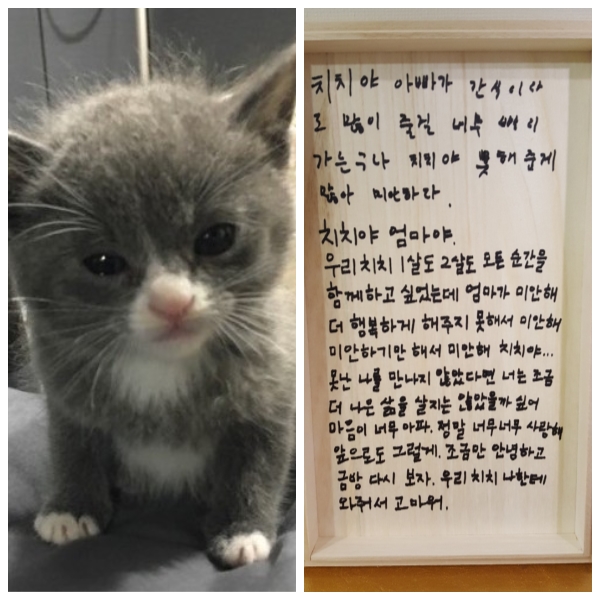 치치야 아빠가 간식이라
도 많이 줄걸 너무 빨리
가는구나 치치야 못해준게
많아 미안하다.
치치야 엄마야.
우리 치치 1살도 2살도 모든 순간을
함께하고 싶었는데 엄마가 미안해
더 행복하게 해주지 못해서 미안해
미안하기만 해서 미안해 치치야...
못난 나를 만나지 않았다면 너는 조금
더 나은 삶을 살지는 않았을까 싶어
마음이 너무 아파. 정말 너무너무 사랑해
앞으로도 그럴게. 조금만 안녕하고
금방 다시 보자. 우리 치치 나한테
와줘서 고마워.